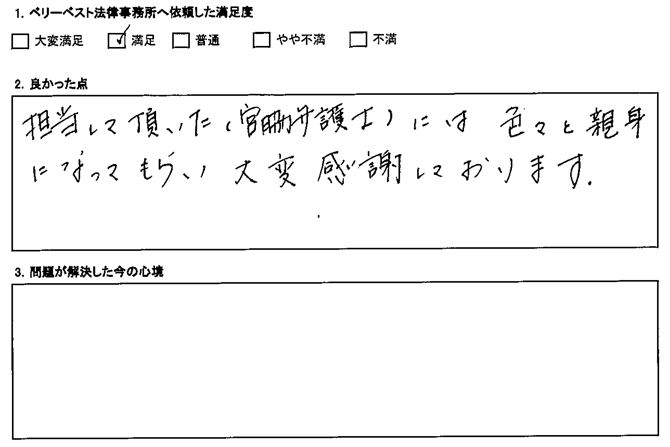 1. ベリーベスト法律事務所へ依頼した満足度
□ 大変満足 ☑ 満足 □ 普通 □ やや不満 □ 不満
2. 良かった点
担当して頂いた(宮﨑弁護士)には 色々と親身
になってもらい 大変 感謝しております.
3. 問題が解決した今の心境